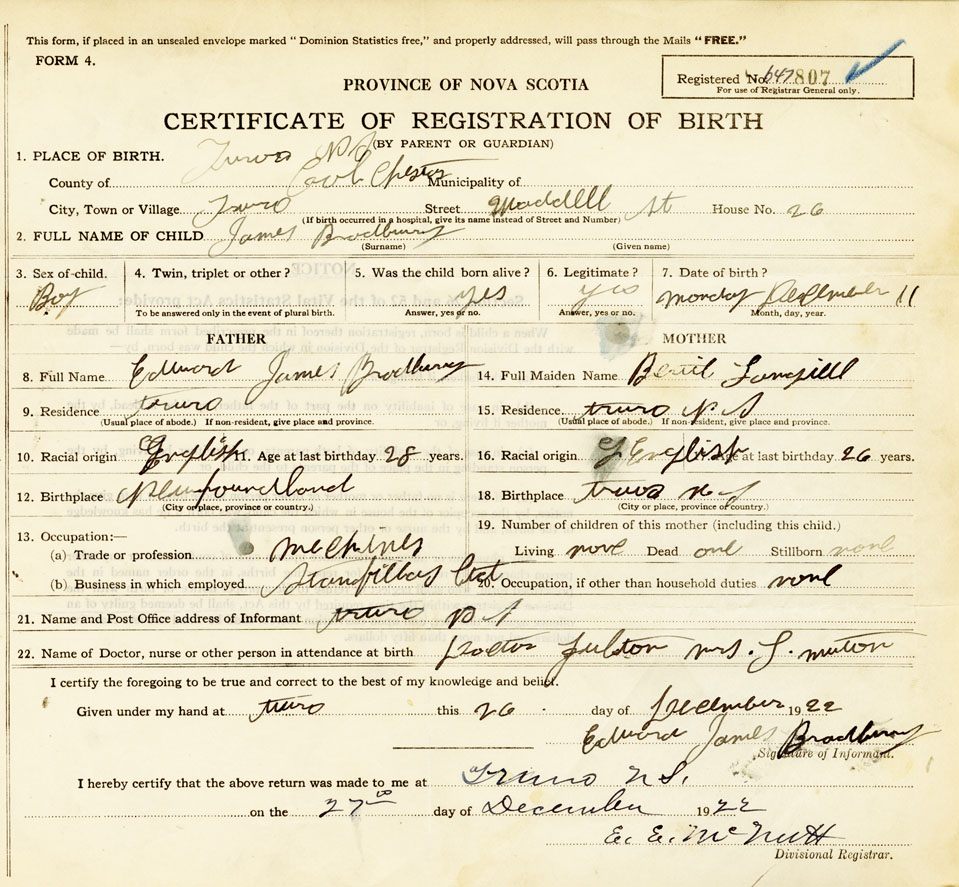 This form, if placed in an unsealed envelope marked "Dominion Statistics free," and properly addressed, will pass through the Mails "FREE."
FORM 4.
Registered No. 807
For use of Registrar General only.
PROVINCE OF NOVA SCOTIA
CERTIFICATE OF REGISTRATION OF BIRTH
(BY PARENT OR GUARDIAN)
1. PLACE OF BIRTH. Truro N S
County of Colchester Municipality of
City, Town or Village Truro Street Waddell St House No. 26
(If birth occurred in a hospital, give its name instead of Street and Number)
2. FULL NAME OF CHILD James Bradbury
(Surname) (Given name)
3. Sex of-child. 4. Twin, triplet or other? 5. Was the child born alive? 6. Legitimate? 7. Date of birth?
Boy yes yes Monday December 11
To be answered only in the event of plural birth. Answer, yes or no. Answer, yes or no. Month, day, year.
FATHER MOTHER
8. Full Name Edward James Bradbury 14. Full Maiden Name
9. Residence truro 15. Residence truro N S
(Usual place of abode.) If non-resident, give place and province. (Usual place of abode.) If non-resident, give place and province.
10. Racial origin English 11. Age at last birthday 28 years. 16. Racial origin English Age at last birthday 26 years.
12. Birthplace Newfoundland 18. Birthplace truro n s
(City or place, province or country.) (City or place, province or country.)
19. Number of children of this mother (including this child.)
13. Occupation:—
(a) Trade or profession Living none Dead one Stillborn none
(b) Business in which employed 20. Occupation, if other than household duties none
21. Name and Post Office address of Informant truro N S
22. Name of Doctor, nurse or other person in attendance at birth Doctor mrs.
I certify the foregoing to be true and correct to the best of my knowledge and belief.
Given under my hand at truro this 26 day of December 1922
Edward James Bradbury
Signature of Informant.
I hereby certify that the above return was made to me at Truro N.S.
on the 27th day of December 1922
E. E. McNutt
Divisional Registrar.